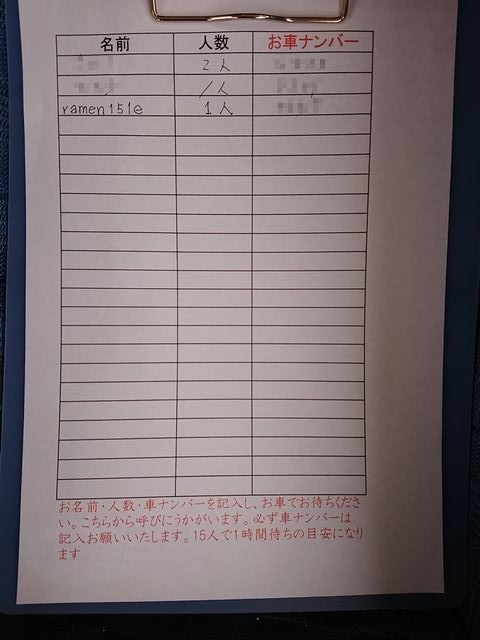 名前 人数 お車ナンバー
2人
1人
ramen151e 1人
お名前・人数・車ナンバーを記入し、お車でお待ちくださ
い。こちらから呼びにうかがいます。必ず車ナンバーは
記入お願いいたします。15人で1時間待ちの目安になり
ます